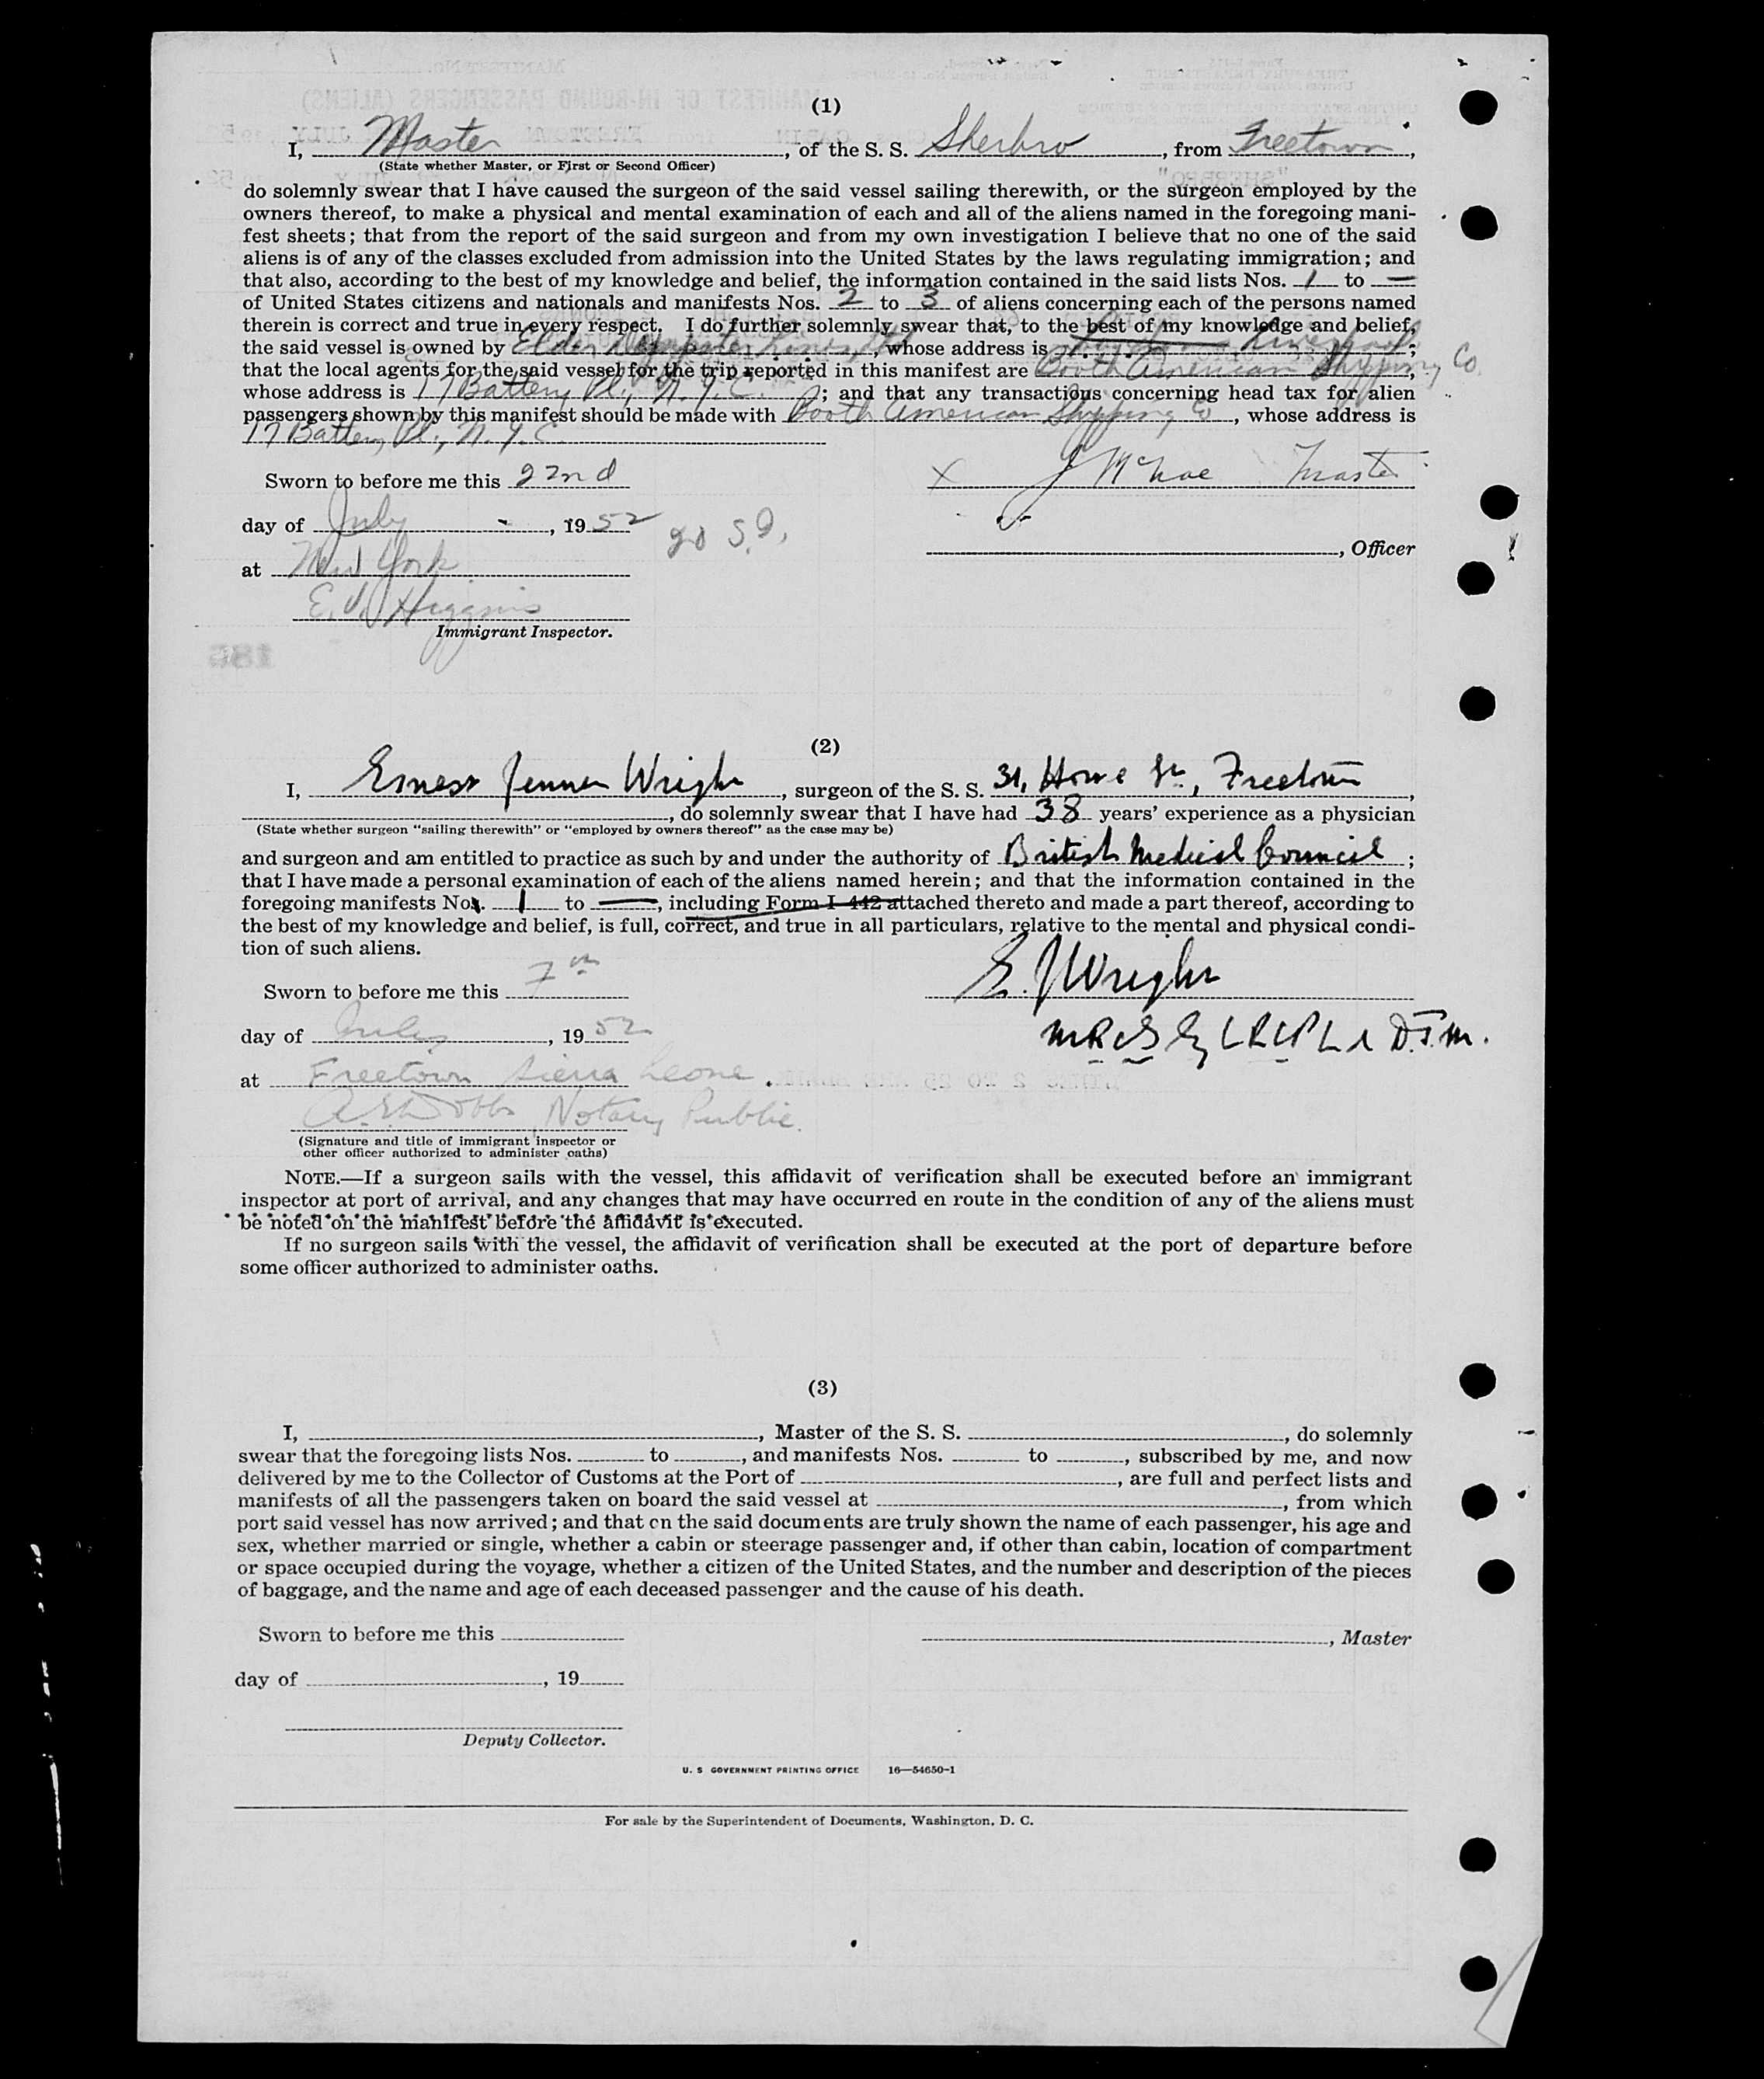 (1)
I, Master, of the S. S. Sherbro, from Freetown,
(State whether Master, or First or Second Officer)
do solemnly swear that I have caused the surgeon of the said vessel sailing therewith, or the surgeon employed by the
owners thereof, to make a physical and mental examination of each and all of the aliens named in the foregoing mani-
fest sheets; that from the report of the said surgeon and from my own investigation I believe that no one of the said
aliens is of any of the classes excluded from admission into the United States by the laws regulating immigration; and
that also, according to the best of my knowledge and belief, the information contained in the said lists Nos. 1 to —
of United States citizens and nationals and manifests Nos. 2 to 3 of aliens concerning each of the persons named
therein is correct and true in every respect. I do further solemnly swear that, to the best of my knowledge and belief,
the said vessel is owned by Elder Dempster Lines, Ltd, whose address is Liverpool;
that the local agents for the said vessel for the trip reported in this manifest are Booth American Shipping Co.,
whose address is 17 Battery Pl., N.Y.C.; and that any transactions concerning head tax for alien
passengers shown by this manifest should be made with Booth American Shipping Co, whose address is
17 Battery Pl., N.Y.C.
Sworn to before me this 22nd
X J McRae Master
day of July, 1952
at New York
, Officer
E. V. Higgins
Immigrant Inspector.
(2)
I, Ernest Jenner Wright, surgeon of the S. S. 31, Howe St., Freetown,
, do solemnly swear that I have had 38 years' experience as a physician
(State whether surgeon "sailing therewith" or "employed by owners thereof" as the case may be)
and surgeon and am entitled to practice as such by and under the authority of British Medical Council;
that I have made a personal examination of each of the aliens named herein; and that the information contained in the
foregoing manifests Nos. 1 to —, including Form I-442 attached thereto and made a part thereof, according to
the best of my knowledge and belief, is full, correct, and true in all particulars, relative to the mental and physical condi-
tion of such aliens.
Sworn to before me this 7th
E. J Wright
day of July, 1952
M.R.C.S Eng L.R.C.P L D.T.M.
at Freetown Sierra Leone.
Dobbs Notary Public.
(Signature and title of immigrant inspector or
other officer authorized to administer oaths)
NOTE.—If a surgeon sails with the vessel, this affidavit of verification shall be executed before an immigrant
inspector at port of arrival, and any changes that may have occurred en route in the condition of any of the aliens must
be noted on the manifest before the affidavit is executed.
If no surgeon sails with the vessel, the affidavit of verification shall be executed at the port of departure before
some officer authorized to administer oaths.
(3)
I, , Master of the S. S. , do solemnly
swear that the foregoing lists Nos. to , and manifests Nos. to , subscribed by me, and now
delivered by me to the Collector of Customs at the Port of , are full and perfect lists and
manifests of all the passengers taken on board the said vessel at , from which
port said vessel has now arrived; and that on the said documents are truly shown the name of each passenger, his age and
sex, whether married or single, whether a cabin or steerage passenger and, if other than cabin, location of compartment
or space occupied during the voyage, whether a citizen of the United States, and the number and description of the pieces
of baggage, and the name and age of each deceased passenger and the cause of his death.
Sworn to before me this
, Master
day of , 19
Deputy Collector.
U. S GOVERNMENT PRINTING OFFICE 16—54650-1
For sale by the Superintendent of Documents, Washington, D. C.